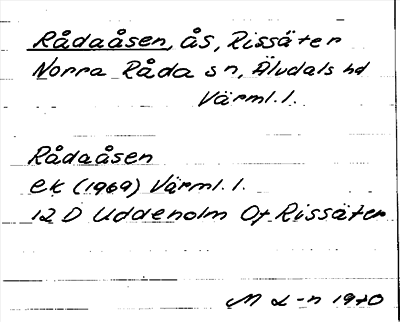 Rådaåsen, ås, Rissäter
Norra Råda sn, Älvdals hd
Värml. l.
Rådaåsen
ek (1969) Värml. l.
12 D Uddeholm Of Rissäter
M L-n 1970